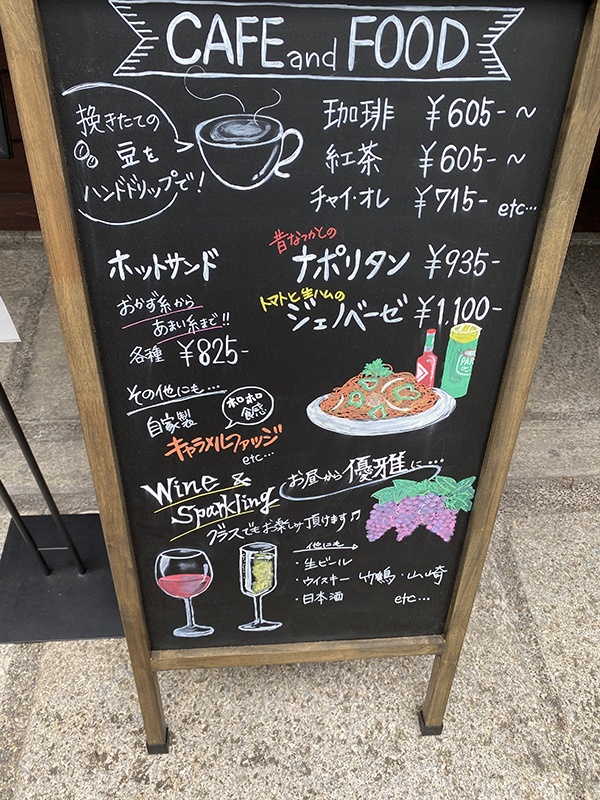 CAFE and FOOD
挽きたての
豆を
ハンドドリップで!
珈琲 ¥605-～
紅茶 ¥605-～
チャイ・オレ ¥715- etc…
ホットサンド
おかず系から
あまい系まで!!
各種 ¥825-
昔なつかしの
ナポリタン ¥935-
トマトと生ハムの
ジェノベーゼ ¥1,100-
その他にも…
自家製
ホロホロ
食感
キャラメルファッジ
etc…
Wine &
Sparkling
お昼から優雅に…
グラスでもお楽しみ頂けます♫
他にも
・生ビール
・ウイスキー 竹鶴・山崎
・日本酒 etc…